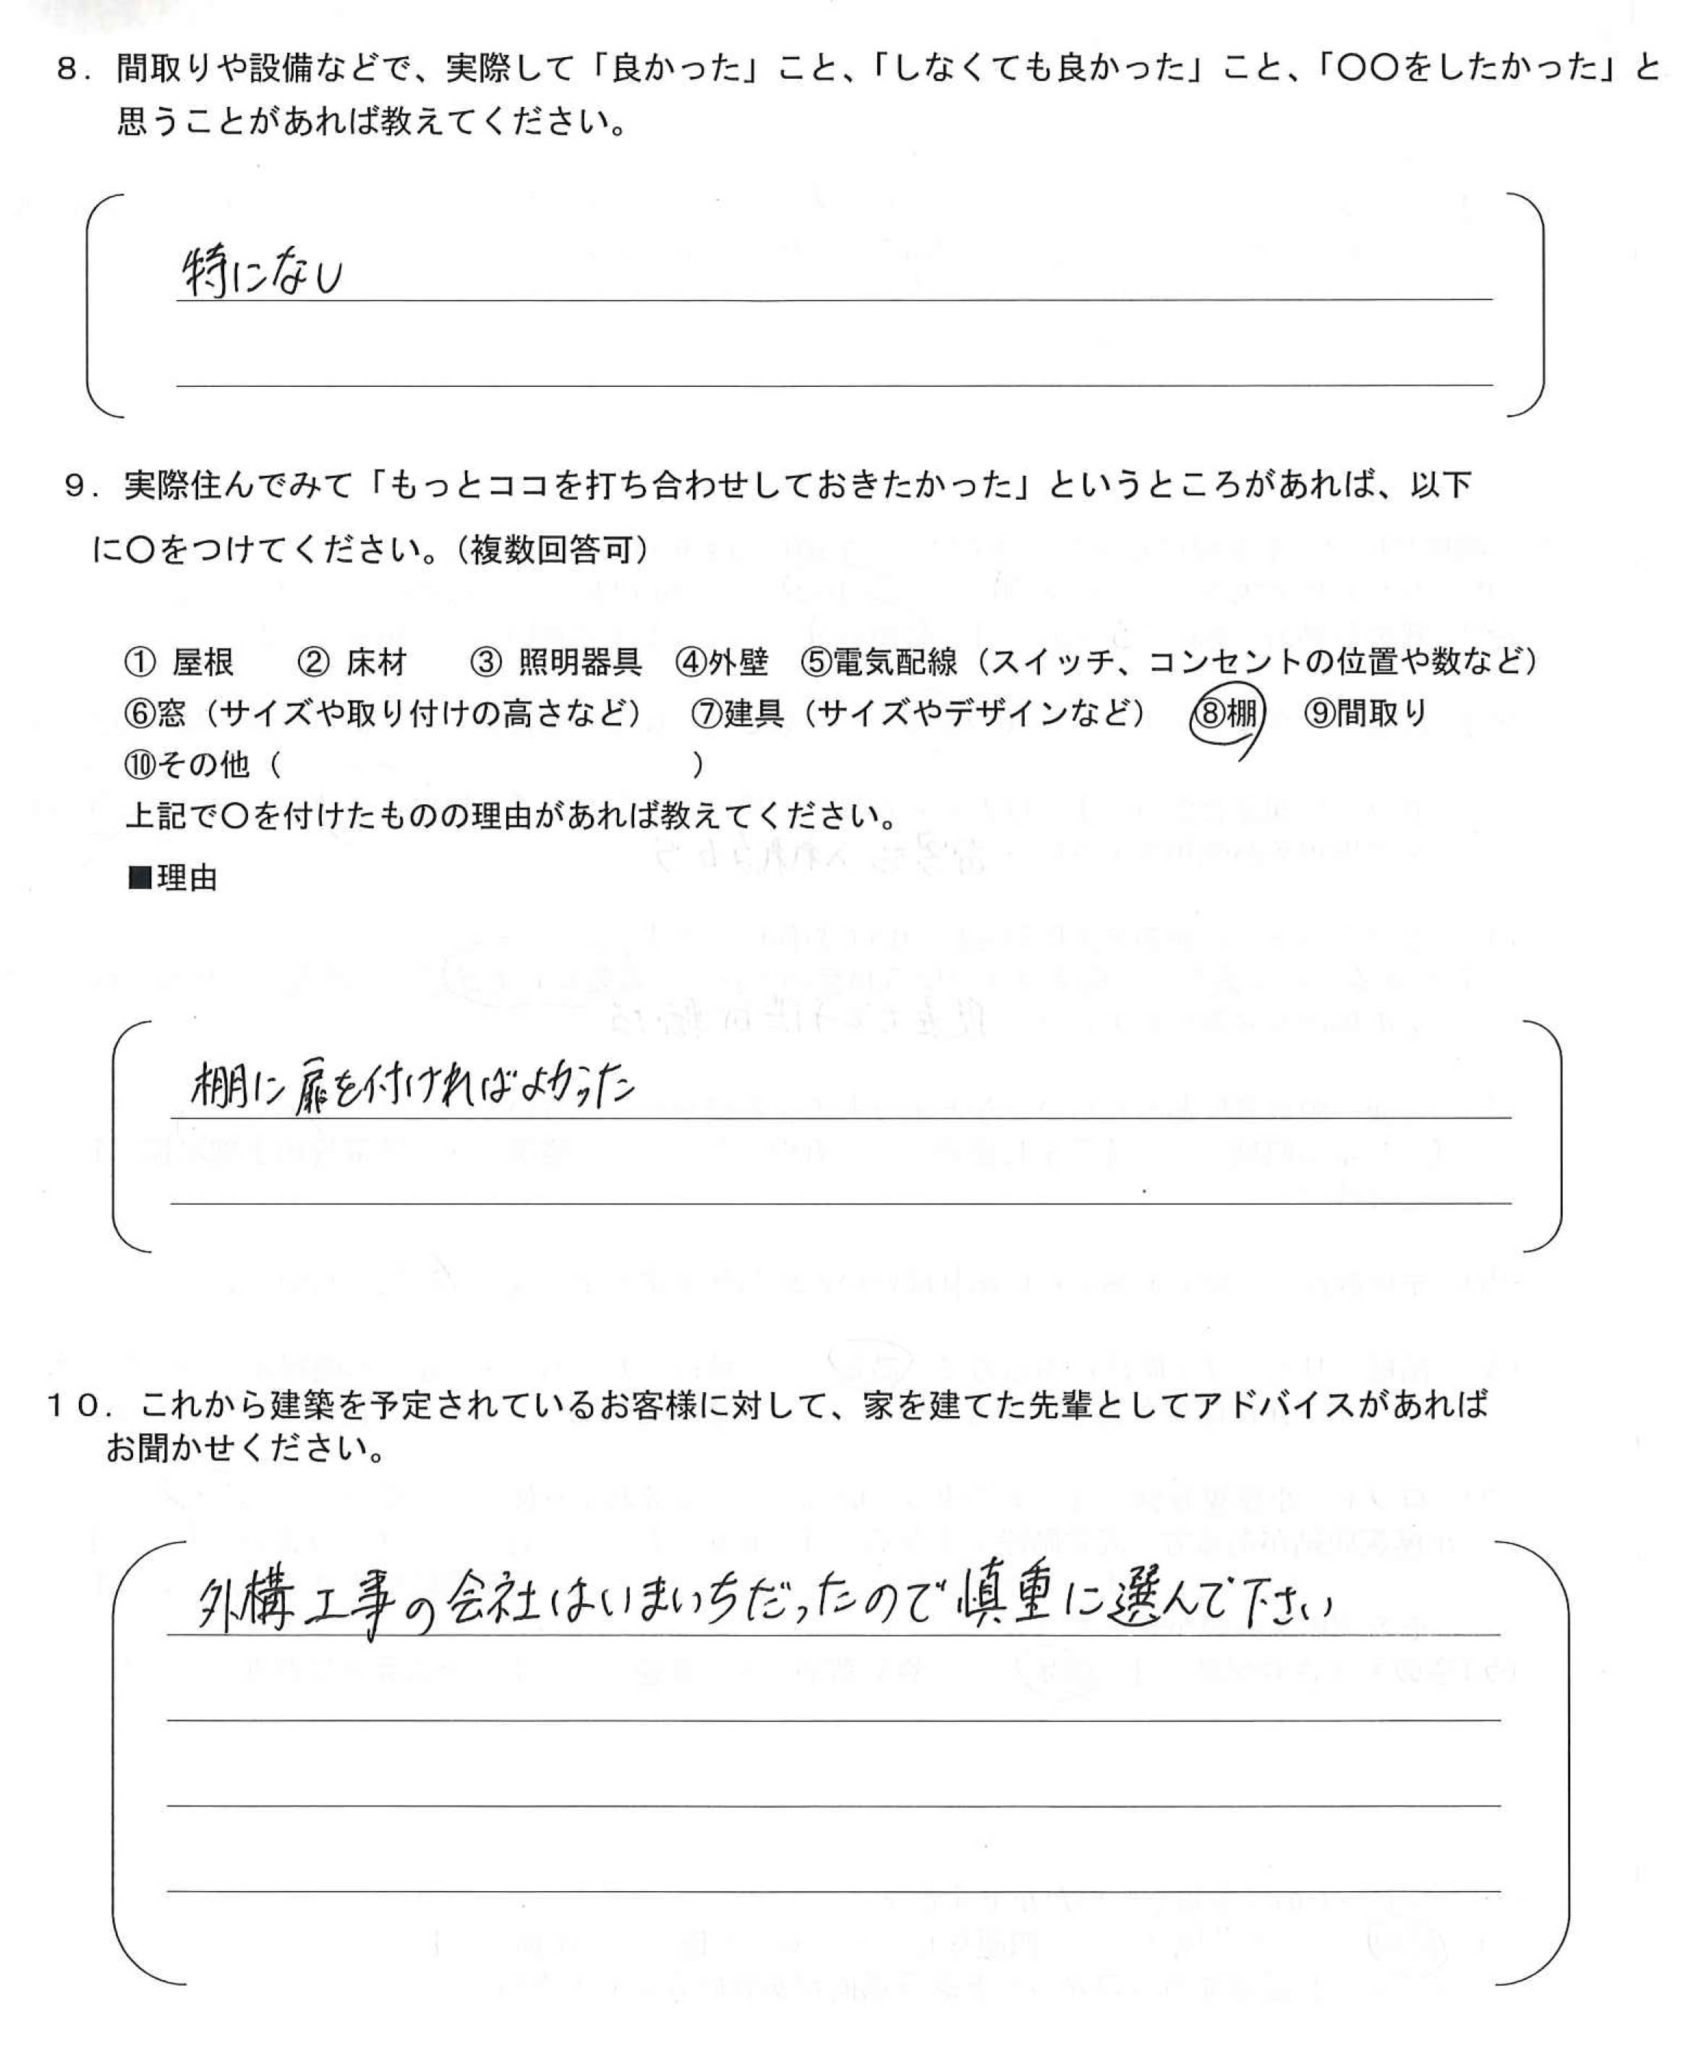 ８．間取りや設備などで、実際して「良かった」こと、「しなくても良かった」こと、「〇〇をしたかった」と
思うことがあれば教えてください。
特になし
９．実際住んでみて「もっとココを打ち合わせしておきたかった」というところがあれば、以下
に〇をつけてください。（複数回答可）
① 屋根　② 床材　③ 照明器具　④外壁　⑤電気配線（スイッチ、コンセントの位置や数など）
⑥窓（サイズや取り付けの高さなど）　⑦建具（サイズやデザインなど）　⑧棚　⑨間取り
⑩その他（　　　　　　　　　　　　　）
上記で〇を付けたものの理由があれば教えてください。
■理由
棚に扉を付ければよかった
１０．これから建築を予定されているお客様に対して、家を建てた先輩としてアドバイスがあれば
お聞かせください。
外構工事の会社はいまいちだったので慎重に選んで下さい